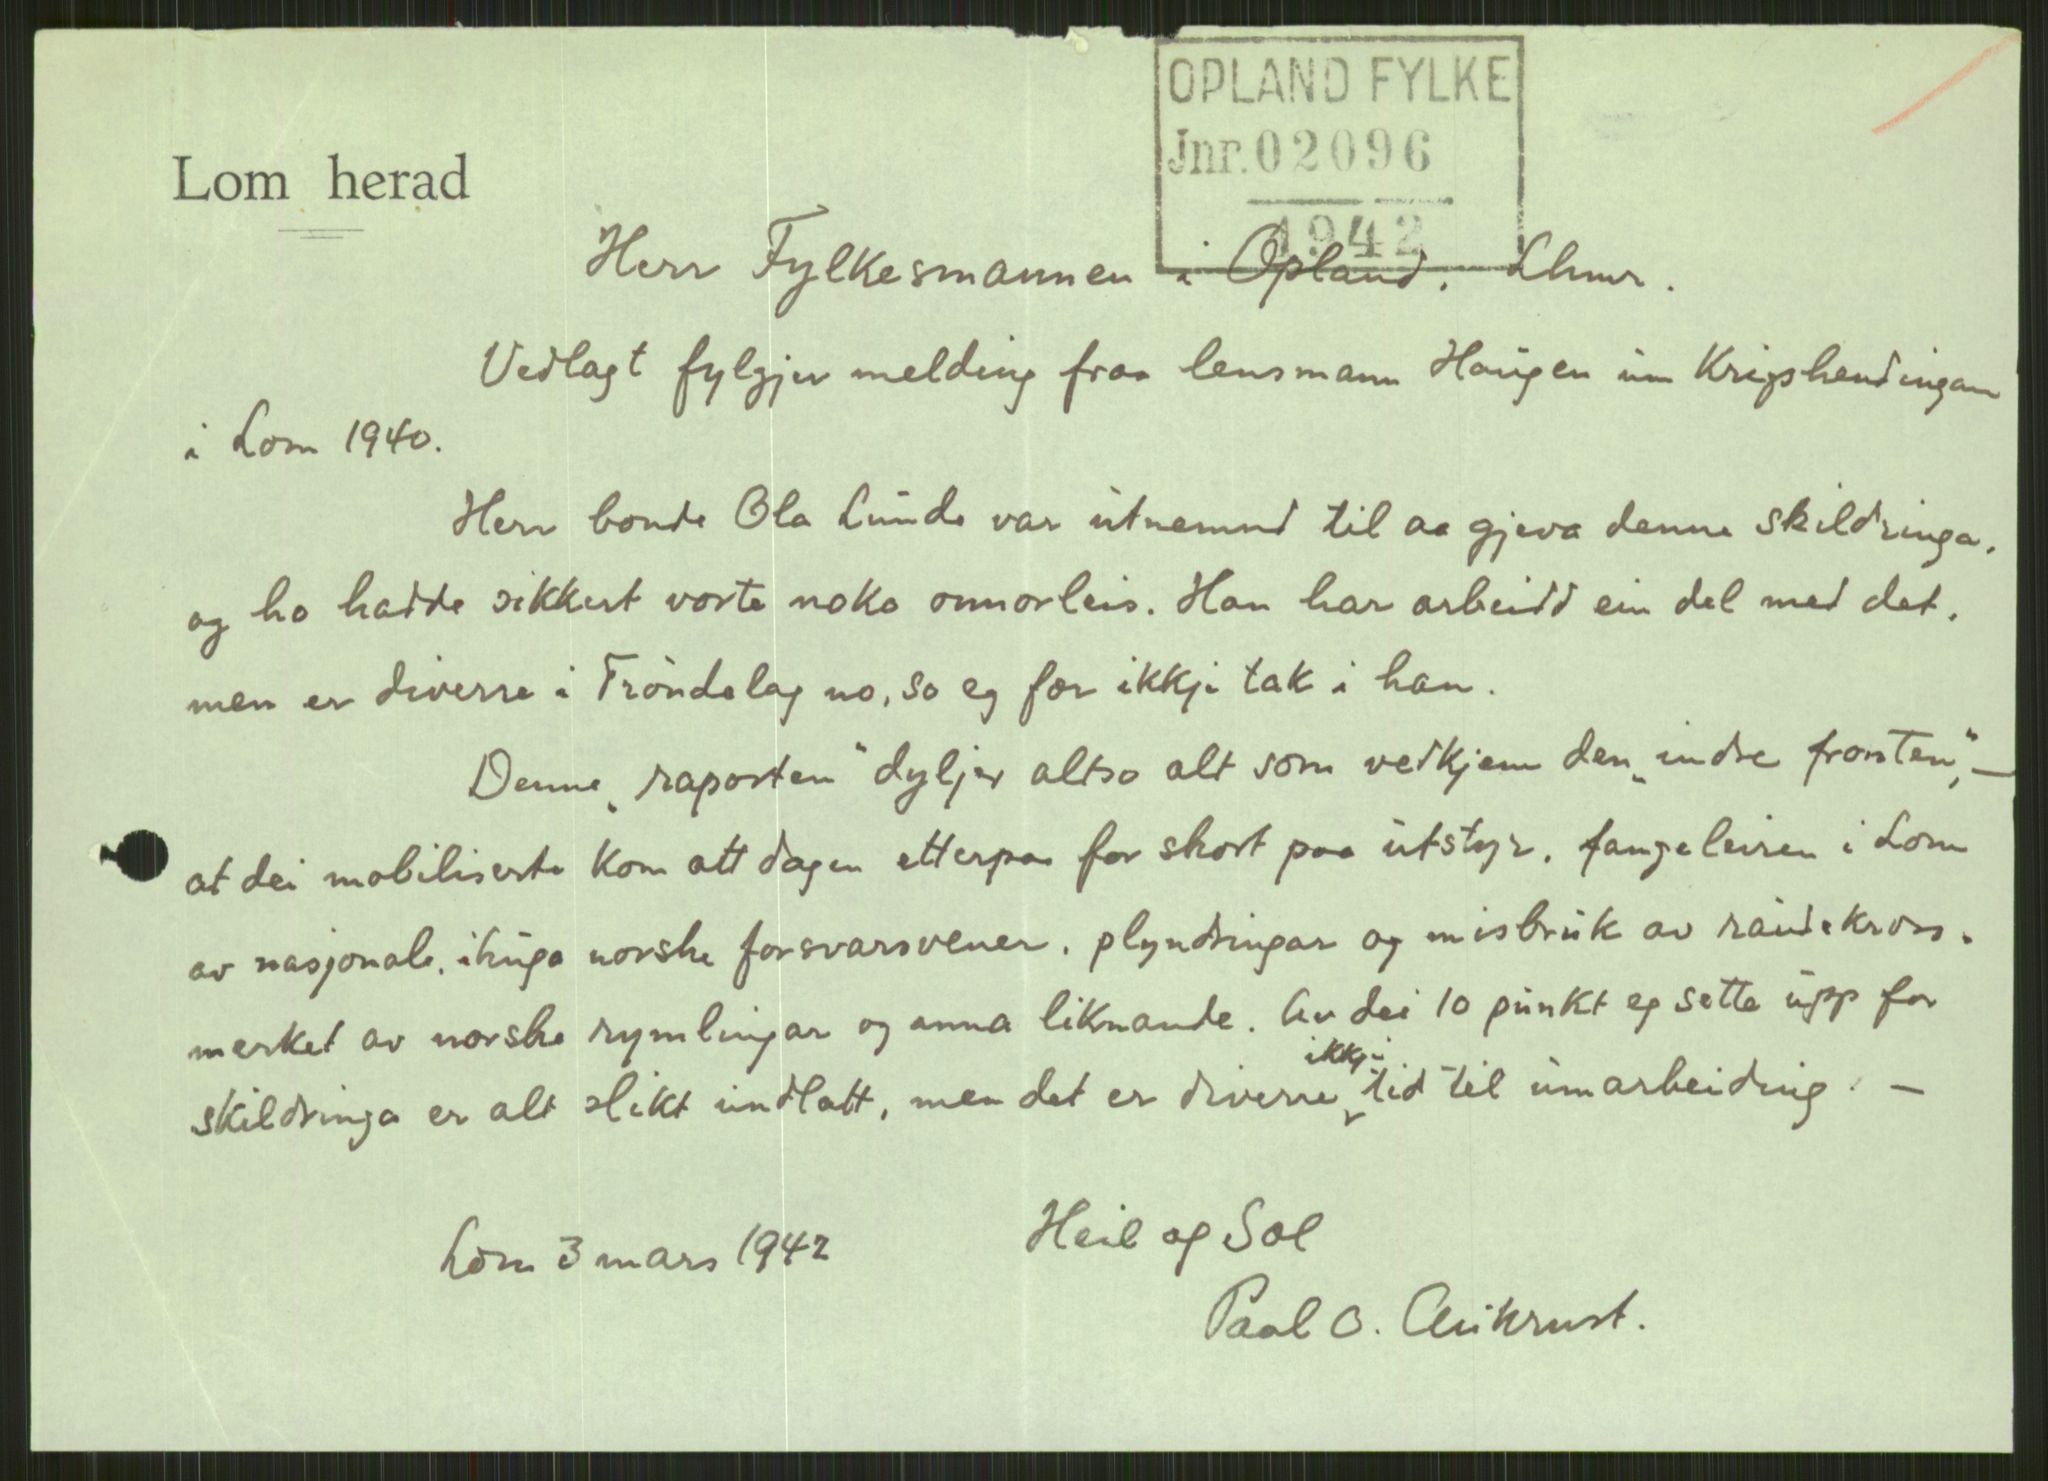 OPLAND FYLKE
Jnr. 02096
1942
Lom herad
Herr Fylkesmannen i Opland. Lhmr.
Vedlagt fylgjer melding fraa lensmann Haugen um Krigshendingan
i Lom 1940.
Herr bonde Ola Lunde var utnemnd til aa gjeva denne skildringa,
og ho hadde sikkert vorte noko onnorleis. Han har arbeidd ein del med det,
men er diverre i Tröndelag no, so eg fær ikkje tak i han.
Denne „raporten“ dyljer altso alt som vedkjem den „indre fronten“, —
at dei mobiliserte kom att dagen etterpaa for skort paa utstyr, fangeleiren i Lom
av nasjonale, ihuga norske forsvarsvener, plyndringar og misbruk av raudekross-
merket av norske rymlingar og anna liknande. Av dei 10 punkt eg sette upp for
skildringa er alt slikt undlatt, men det er diverre ikkje tid til umarbeiding. —
Lom 3 mars 1942
Heil og Sæl
Paal O. Aukrust.